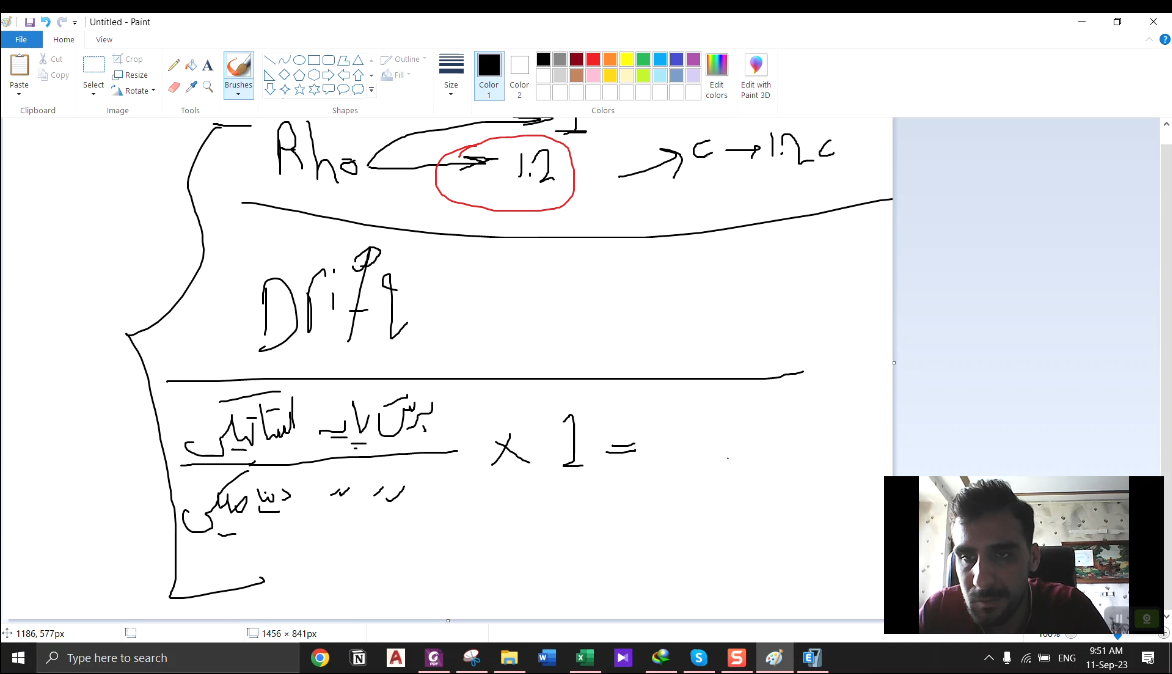 Untitled - Paint
File Home View
Paste Cut Copy Clipboard
Select Crop Resize Rotate Image
Tools
Brushes
Shapes Outline Fill
Size
Color 1 Color 2
Edit colors Edit with Paint 3D Colors
1
Rho 1.2 C → 1.2 C
Drift
برش پایه استاتیکی
× 1 =
〃 〃 دینامیکی
1186, 577px 1456 × 841px 100%
Type here to search
ENG 9:51 AM
11-Sep-23